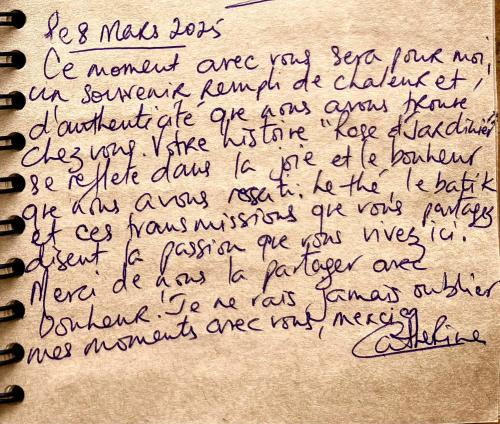 le 8 Mars 2025
Ce moment avec vous sera pour moi,
un souvenir rempli de chaleur et
d'authenticité que nous avons trouvé
chez vous. Votre histoire "Rose et Jardinier"
se reflète dans la joie et le bonheur
que nous avons ressenti. Le thé, le batik
et ces transmissions que vous partagez
disent la passion que vous vivez ici.
Merci de nous la partager avec
bonheur! Je ne vais jamais oublier
mes moments avec vous, merci
Catherine